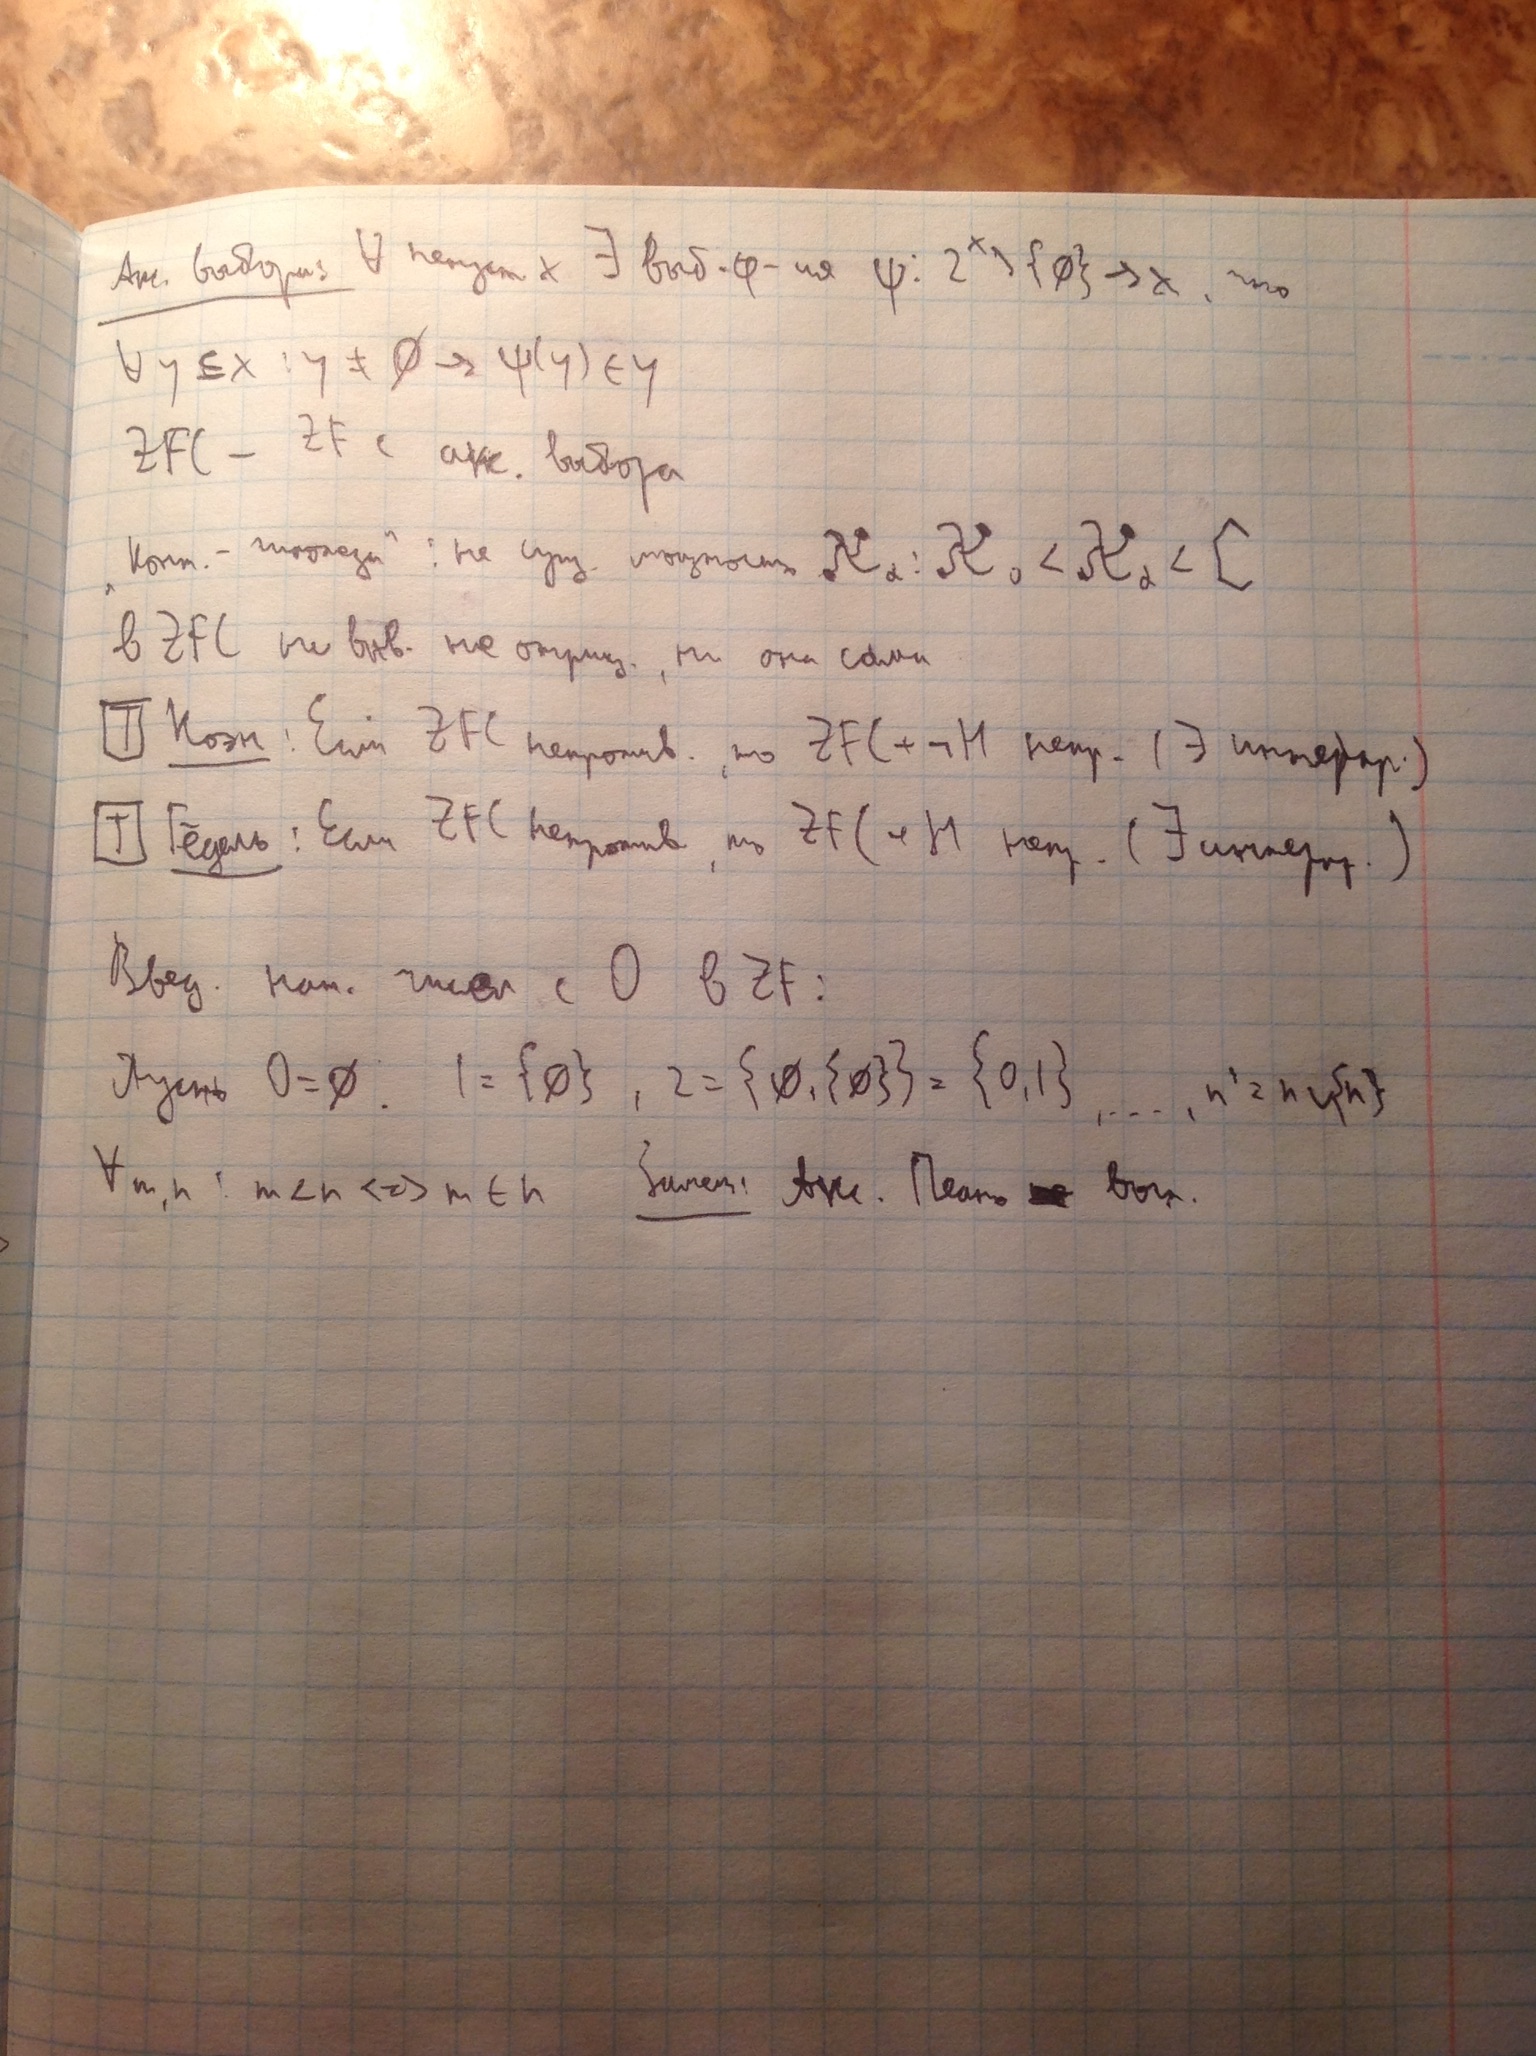 Акс. выбора: ∀ непуст x ∃ выб. ф-ия ψ: 2^x \ {∅} → x, что
∀ y ⊆ x : y ≠ ∅ → ψ(y) ∈ y
ZFC – ZF с акс. выбора
: не сущ. мощности ℵ_α : ℵ_0 < ℵ_α < C
в ZFC ни выв. не отриц., ни она сама
[T] Коэн : Если ZFC непротив., то ZFC + ¬H непр. (∃ интерпр.)
[T] Гёдель : Если ZFC непротив, то ZFC + H непр. (∃ интерпр.)
Введ. нат. чисел с 0 в ZF:
Пусть 0 = ∅. 1 = {∅}, 2 = {∅, {∅}} = {0, 1}, ..., n' = n ∪ {n}
∀ m, n : m < n <=> m ∈ n Замеч: Акс. Пеано вып.